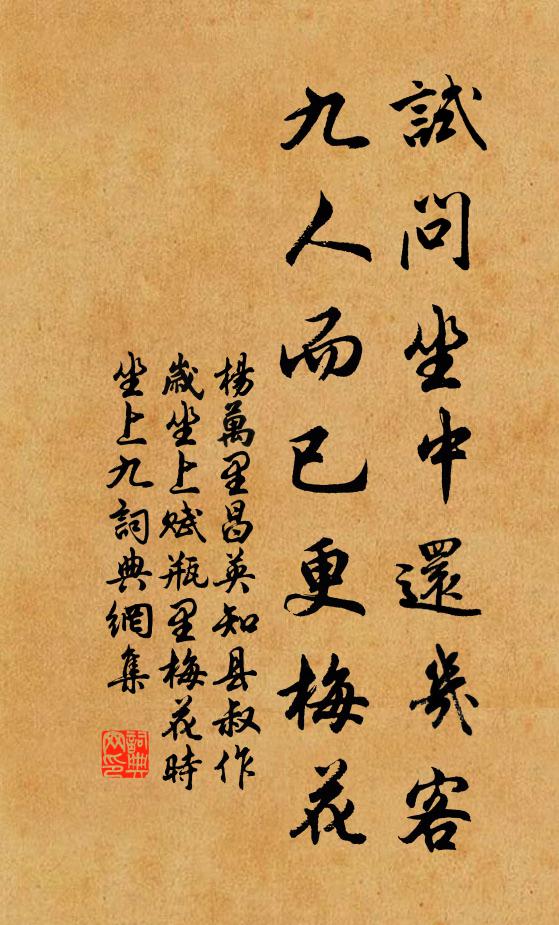 試問坐中還幾客
九人而已更梅花
楊萬里昌英知县叔作
歲坐上赋瓶里梅花時
坐上九詞典網集
詞典网印